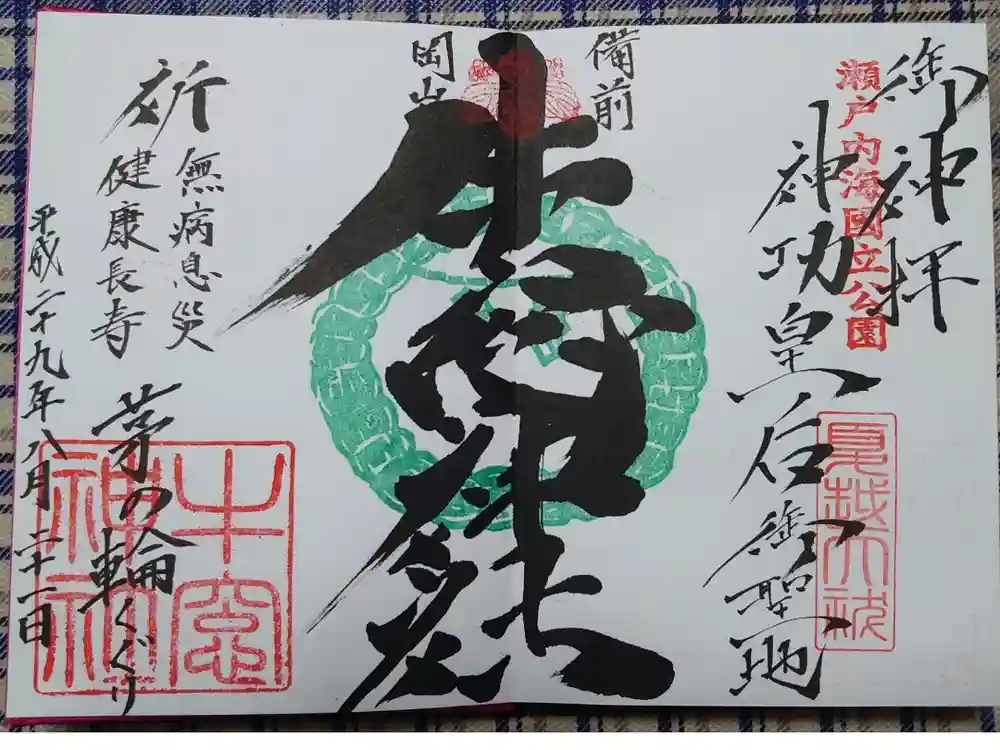 御神拝
瀬戸内海國立公園
神功皇后御聖地
夏越大祓
備前
岡山
牛窓神社
祈
無病息災
健康長寿
茅の輪くぐり
牛窓神社
平成二十九年八月二十一日